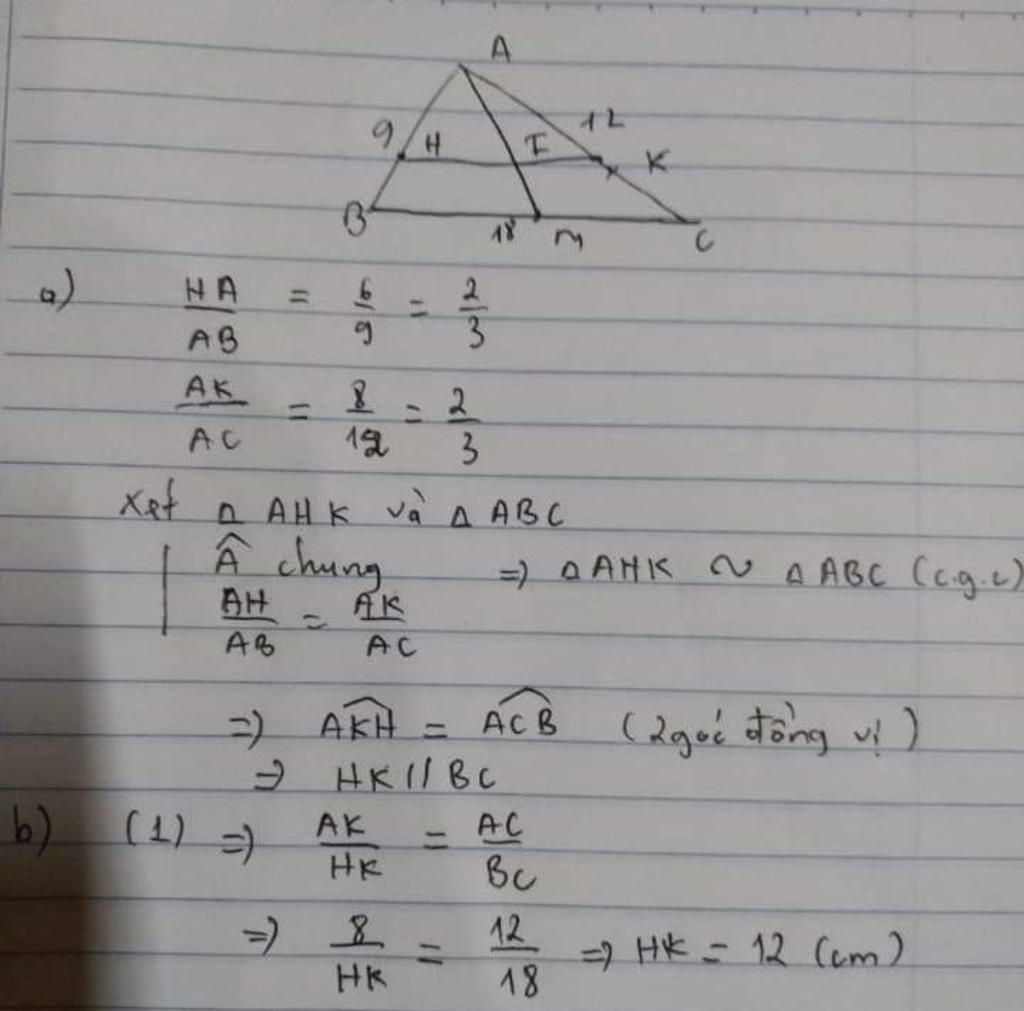 A
9 H I 12 K
B 18 M C
a) HA/AB = 6/9 = 2/3
AK/AC = 8/12 = 2/3
Xét Δ AHK và Δ ABC
Â chung => Δ AHK ~ Δ ABC (c.g.c)
AH/AB = AK/AC
=> AKH = ACB (2 góc đồng vị)
=> HK // BC
b) (1) => AK/HK = AC/BC
=> 8/HK = 12/18 => HK = 12 (cm)